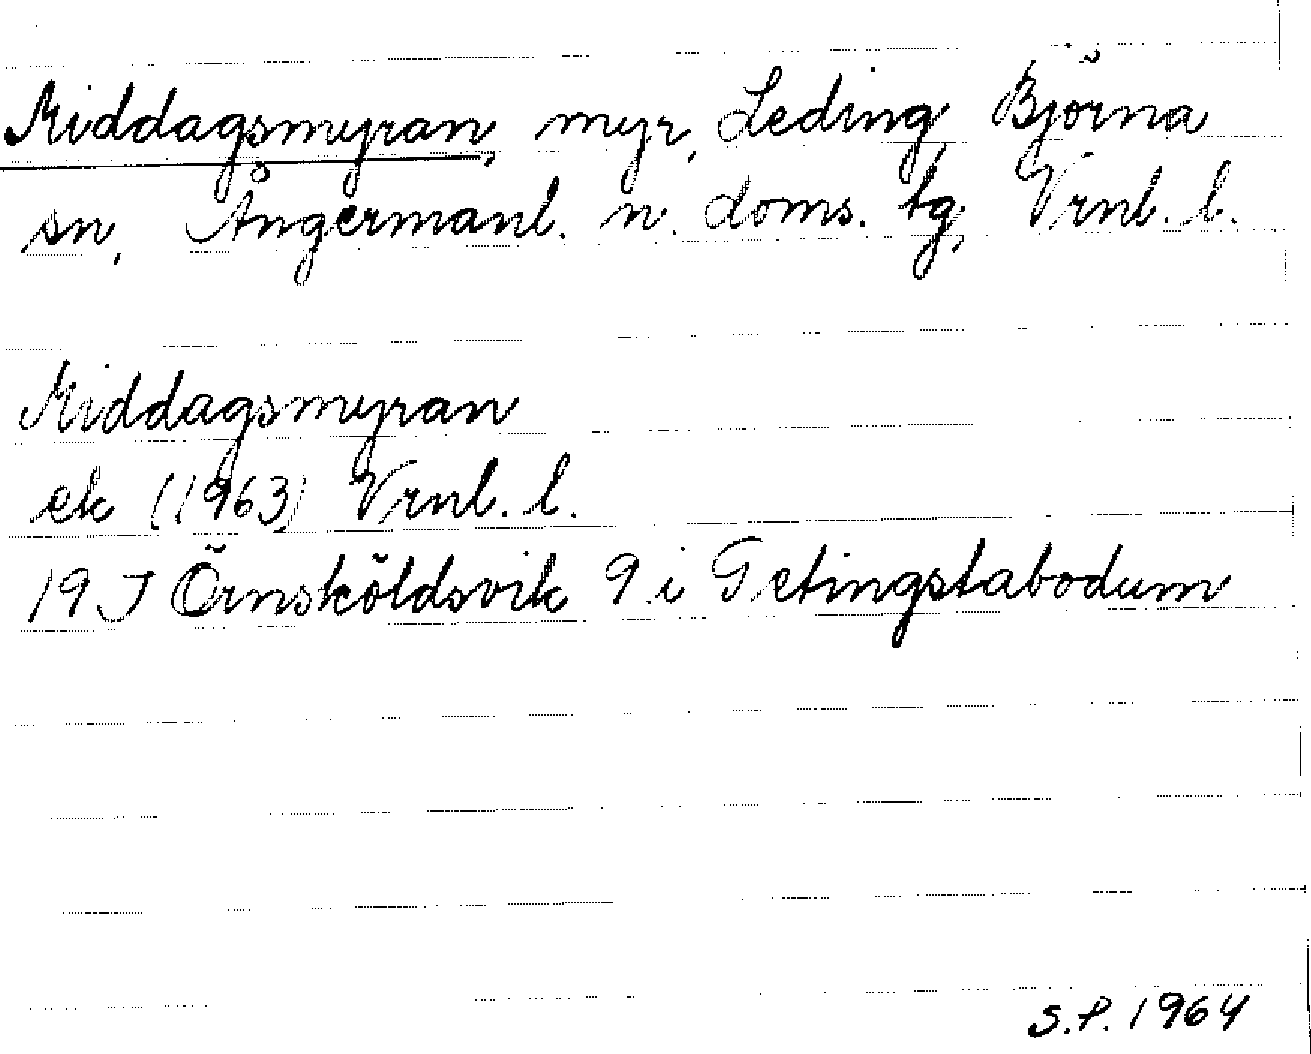 Middagsmyran, myr, Leding, Björna
sn, Ångermanl. n. doms. tg, Vrnl. l.
Middagsmyran
ek (1963) Vrnl. l.
19 J Örnsköldsvik 9 i Getingstabodum
S.P. 1964